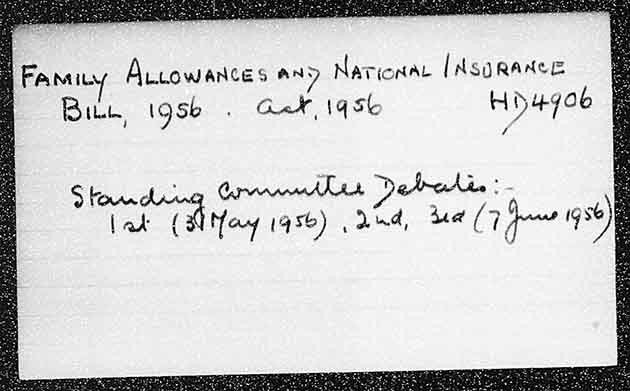 FAMILY ALLOWANCES AND NATIONAL INSURANCE
BILL, 1956. Act, 1956 HD4906
Standing Committee Debates:-
1st (31 May 1956), 2nd, 3rd (7 June 1956)